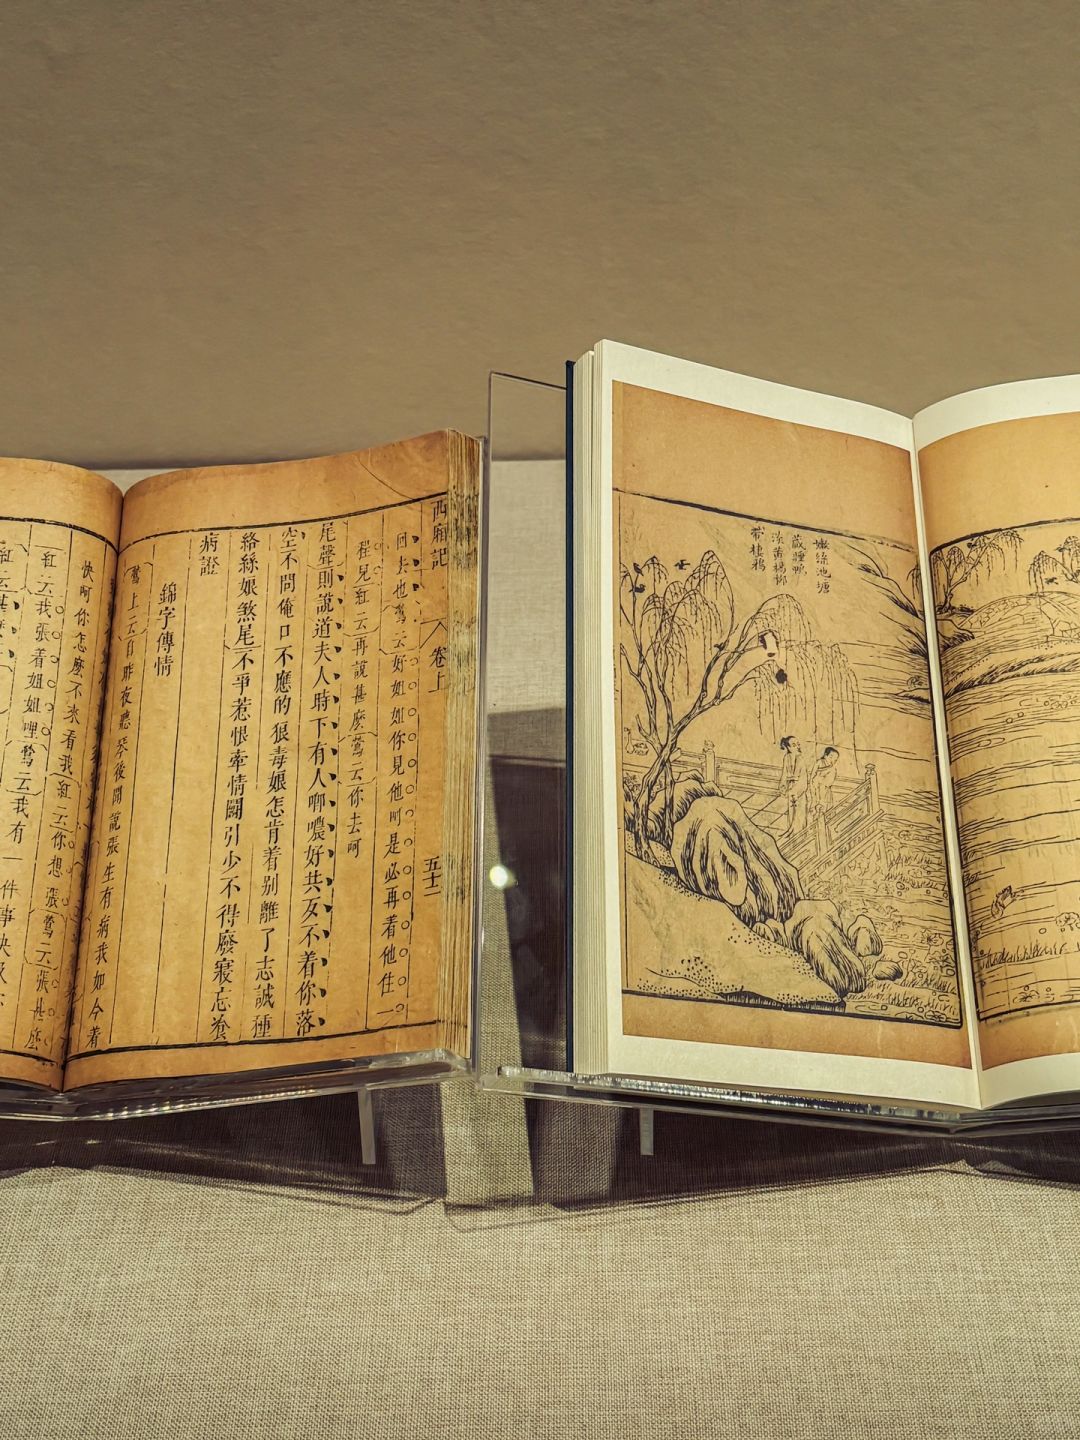 西廂記 卷上 五十二
回去也鶯云好姐姐你見他呵是必再着他住一
程兒紅云再說甚麽鶯云你去呵
尾聲則說道夫人時下有人啣噥好共歹不着你落
空不問俺口不應的狠毒娘怎肯着别離了志誠種
絡絲娘煞尾不爭惹恨牽情鬭引少不得廢寢忘飡
病證
錦字傳情
鶯上云自昨夜聽琴後聞說張生有病我如今着
快呵你怎麽不來看我紅云你想張鶯云張甚麽
紅云我張着姐姐哩鶯云我有一件事央及
紅云甚麽
嫩綠池塘
藏睡鴨
淡黃楊柳
帶棲鴉